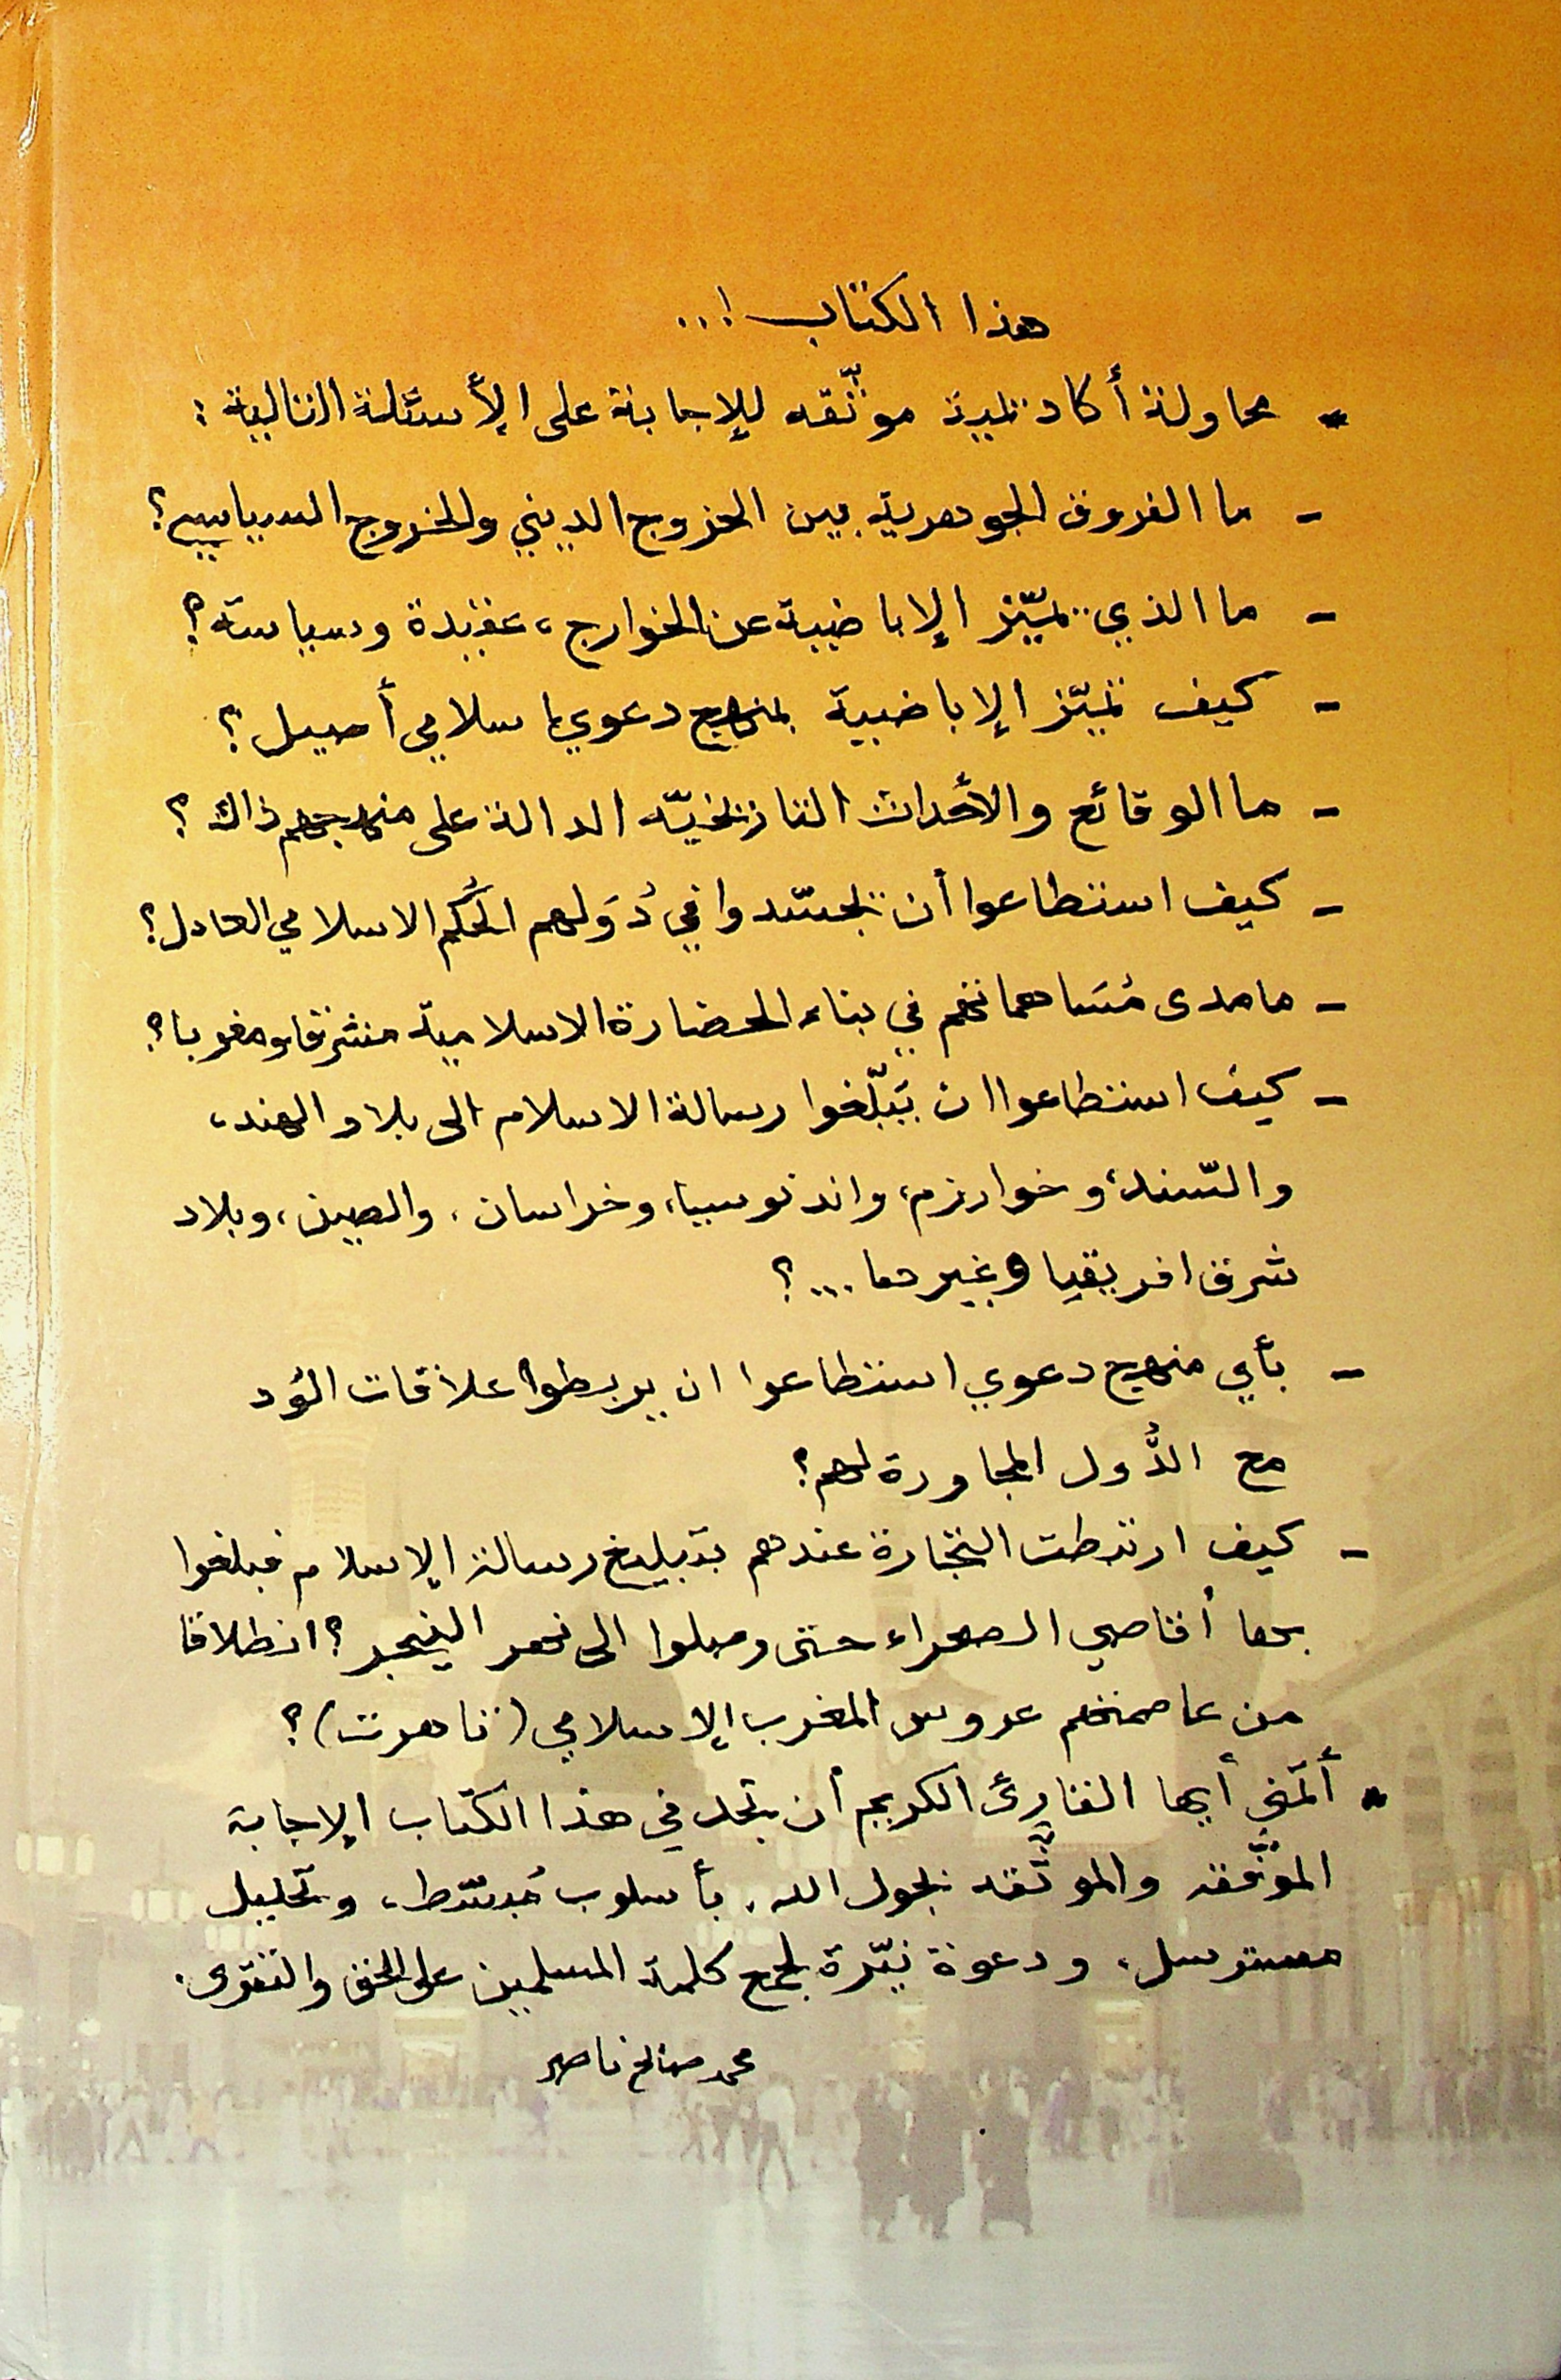 هذا الكتاب !..
* محاولة أكاديمية موثّقه للإجابة على الأسئلة التالية :
- ما الفروق الجوهرية بين الخروج الديني والخروج السياسي؟
- ما الذي يميّز الإباضية عن الخوارج، عقيدة وسياسة؟
- كيف تميّز الإباضية بمنهج دعوي إسلامي أصيل؟
- ما الوقائع والأحداث التاريخيّه الدالة على منهجهم ذاك ؟
- كيف استطاعوا أن يجسّدوا في دُوَلهم الحُكم الاسلامي العادل؟
- ما مدى مُسَاهماتهم في بناء الحضارة الاسلامية مشرقا ومغربا؟
- كيف استطاعوا ان يَبلّغوا رسالة الاسلام الى بلاد الهند،
والسّند، وخوارزم، واندنوسيا، وخراسان، والصين، وبلاد
شرق افريقيا وغيرها...؟
- بأي منهج دعوي استطاعوا ان يربطوا علاقات الوُد
مع الدُّول المجاورة لهم؟
- كيف ارتبطت التجارة عندهم بتبليغ رسالة الإسلام فبلغوا
بها أقاصي الصحراء حتى وصلوا الى نهر النيجر؟ انطلاقا
من عاصمتهم عروس المغرب الإسلامي (تاهرت)؟
* أتمنّى أيها القارئ الكريم أن تجد في هذا الكتاب الإجابة
الموُفّقة والموثّقه بحول الله، بأسلوب مُبسّط، وتحليل
مسترسل، ودعوة نيّرة لجمع كلمة المسلمين على الحق والتقوى.
محمد صالح ناصر